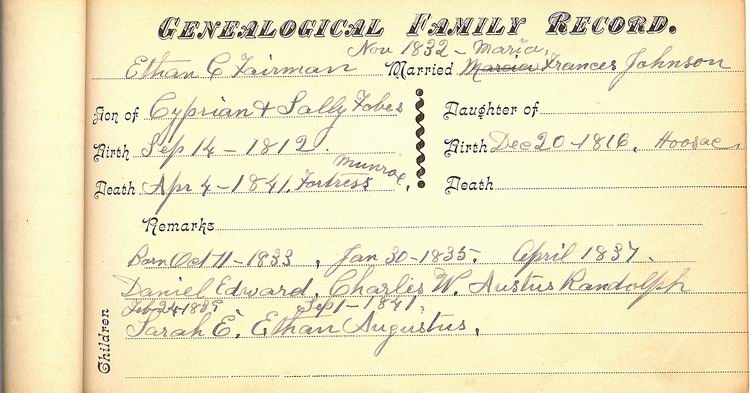 GENEALOGICAL FAMILY RECORD.
Nov 1832 - Maria,
Ethan C Fairman Married Marcia Frances Johnson
Son of Cyprian & Sally Fobes Daughter of
Birth Sep 14 - 1812. Birth Dec 20 - 1816, Hoosac
Munroe,
Death Apr 4 - 1841, Fortress Death
Remarks
Born Oct 11 - 1833 , Jan 30 - 1835. April 1837.
Daniel Edward, Charles W. Austus Randolph
Feb 24 1839 Sep 1 - 1841,
Sarah E. Ethan Augustus,
Children